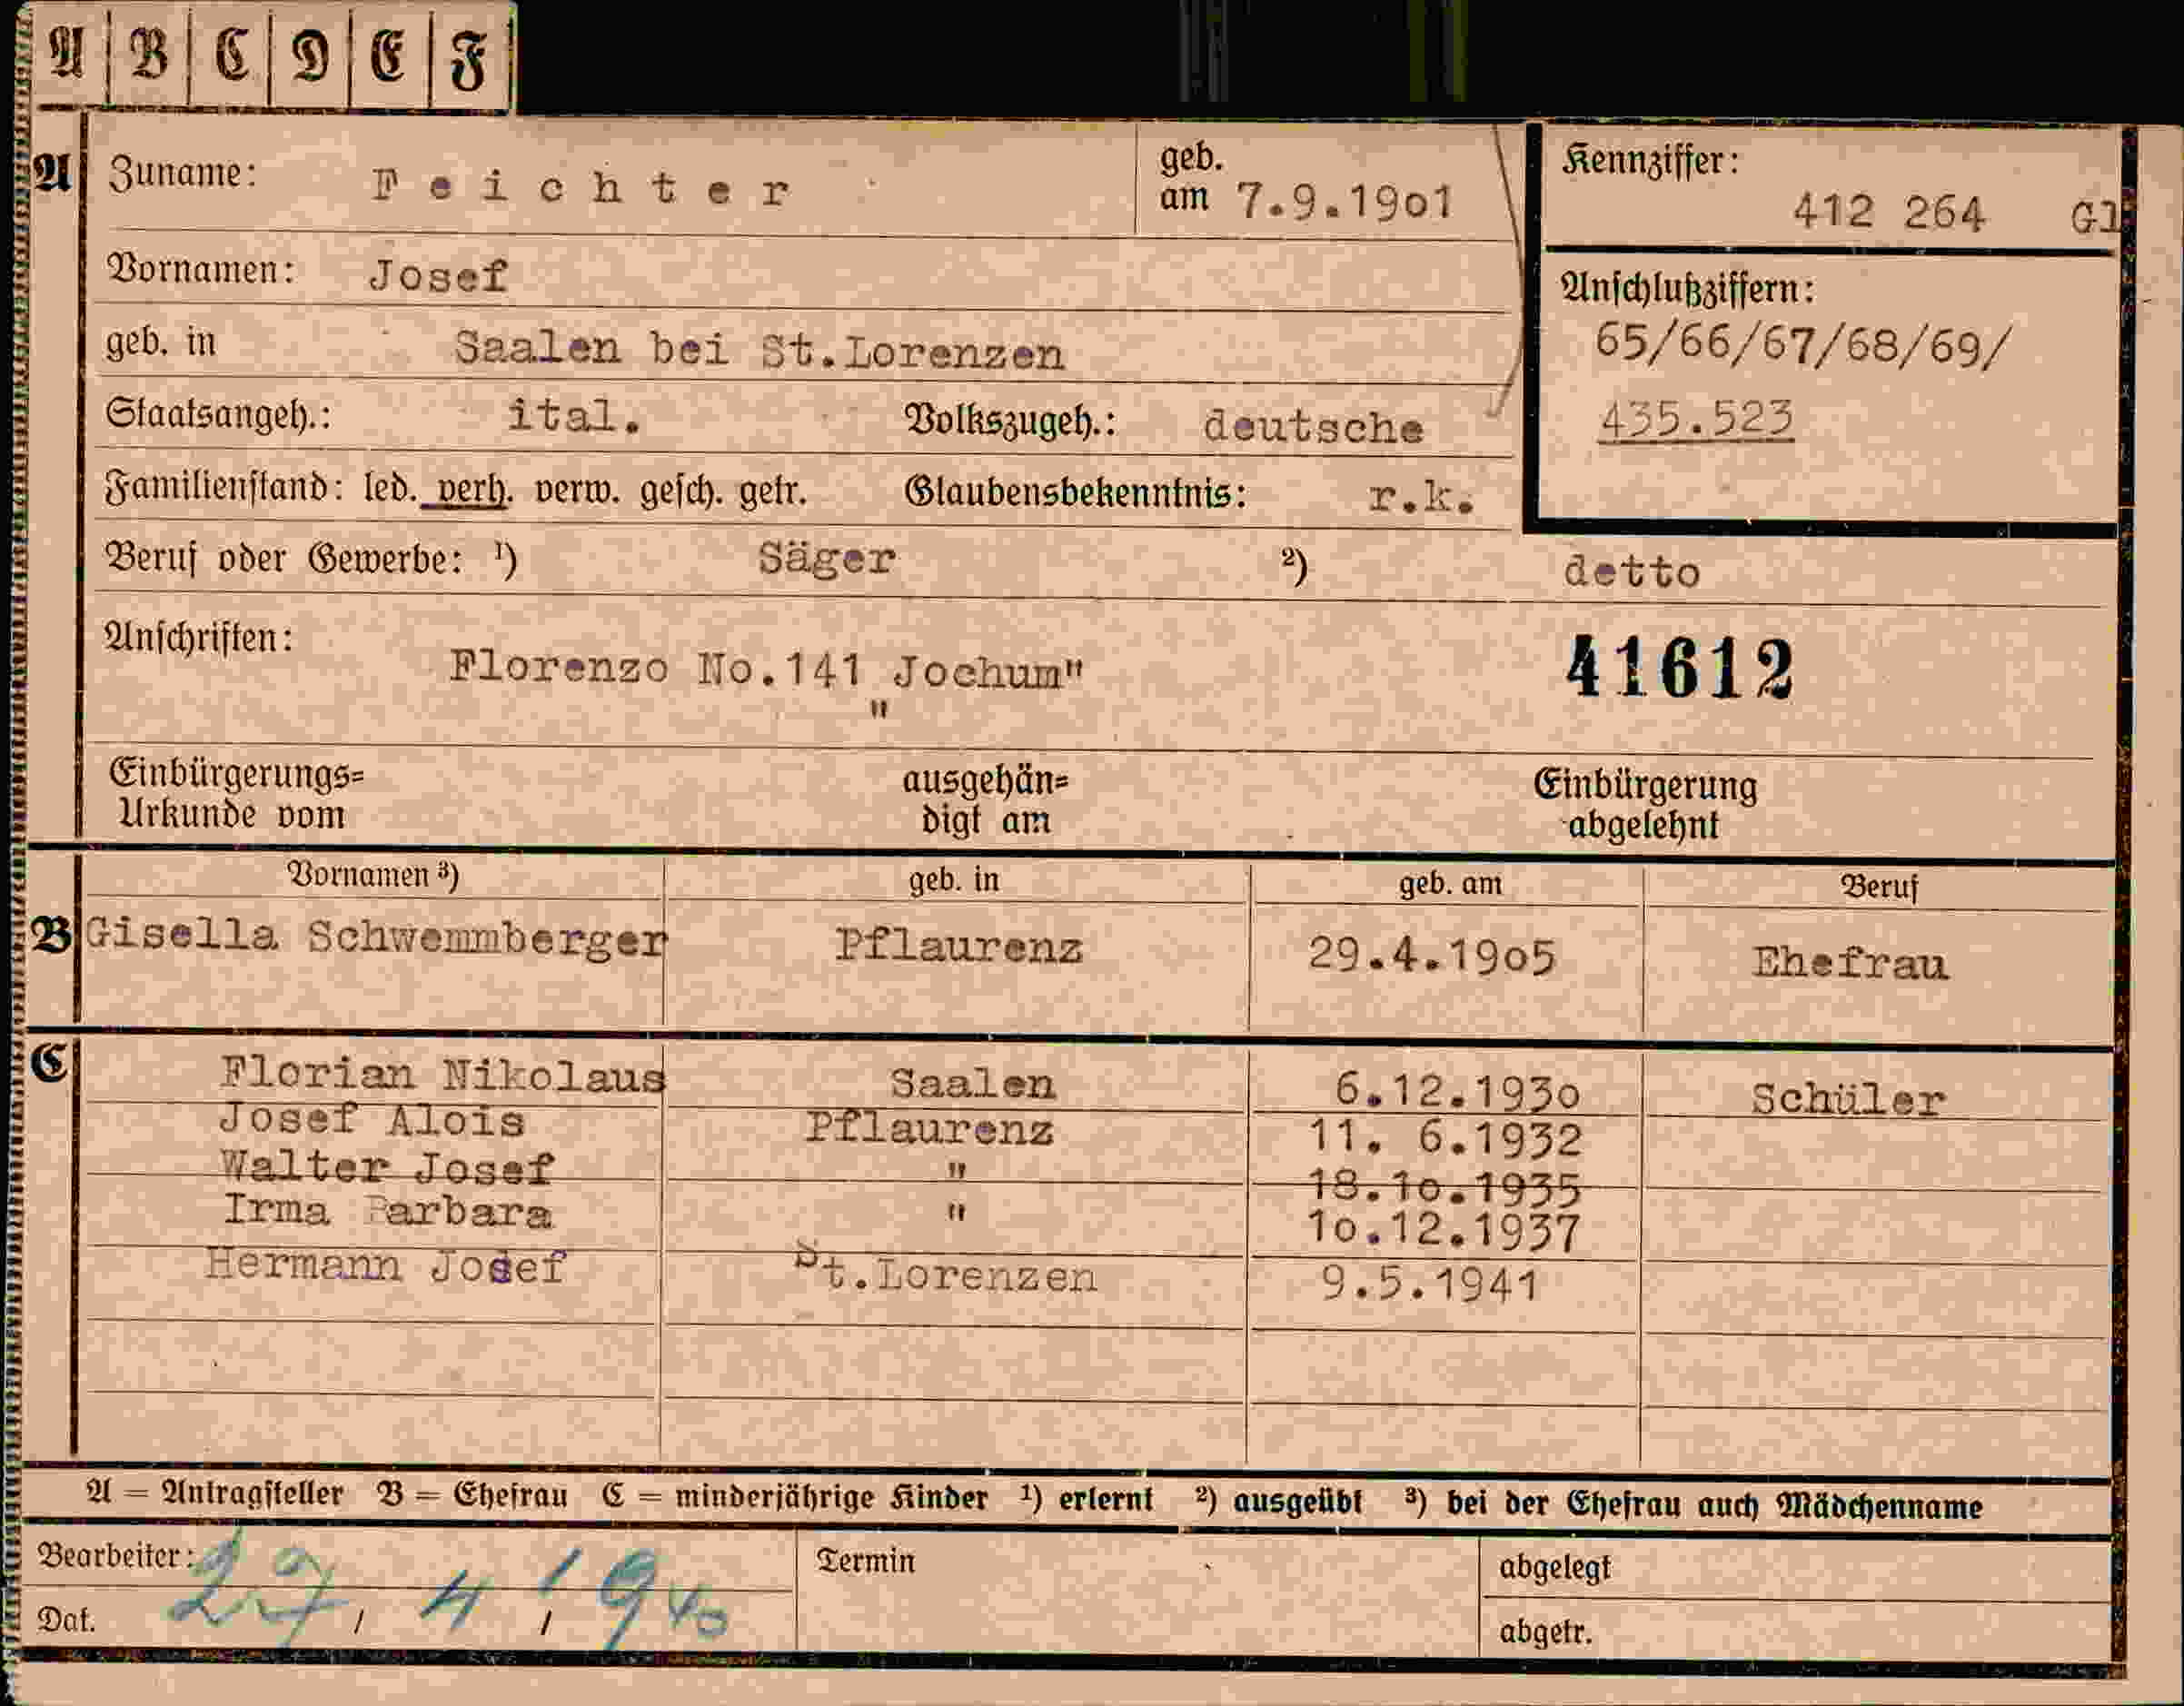 A B C D E F
A Zuname: Feichter geb. am 7.9.1901 Kennziffer:
412 264 Gl
Vornamen: Josef Anschlußziffern:
65/66/67/68/69/
geb. in Saalen bei St.Lorenzen
Staatsangeh.: ital. Volkszugeh.: deutsche 435.523
Familienstand: led. verh. verw. gesch. getr. Glaubensbekenntnis: r.k.
Beruf oder Gewerbe: ¹) Säger ²) detto
Anschriften: Florenzo No.141 „Jochum" 41612
Einbürgerungs= ausgehän= Einbürgerung
Urkunde vom digt am abgelehnt
Vornamen ³) geb. in geb. am Beruf
B Gisella Schwemmberger Pflaurenz 29.4.1905 Ehefrau
C Florian Nikolaus Saalen 6.12.1930 Schüler
Josef Alois Pflaurenz 11. 6.1932
Walter Josef " 18.10.1935
Irma Barbara " 10.12.1937
Hermann Josef St.Lorenzen 9.5.1941
A = Antragsteller B = Ehefrau C = minderjährige Kinder ¹) erlernt ²) ausgeübt ³) bei der Ehefrau auch Mädchenname
Bearbeiter: Termin abgelegt
Dat. 27/4/1940 abgetr.